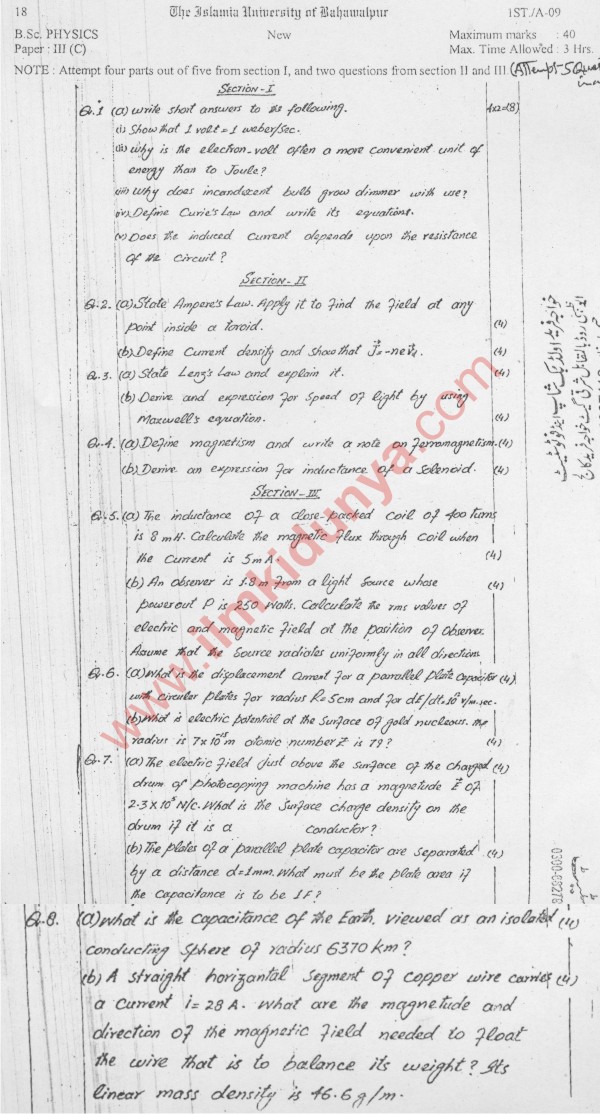 18 The Islamia University of Bahawalpur 1ST./A-09
B.Sc. PHYSICS New Maximum marks : 40
Paper : III (C) Max. Time Allowed : 3 Hrs.
NOTE : Attempt four parts out of five from section I, and two questions from section II and III (Attempt-5 Quest
SECTION-I
Q.1 (a) Write short answers to the following. 4x2=(8)
(i) Show that 1 volt = 1 weber/sec.
(ii) Why is the electron-volt often a more convenient unit of
energy than to Joule?
(iii) Why does incandescent bulb grow dimmer with use?
(iv) Define Curie's Law and write its equations.
(v) Does the induced current depends upon the resistance
of the circuit?
SECTION-II
Q.2. (a) State Ampere's Law. Apply it to find the field at any
point inside a toroid. (4)
(b) Define Current density and show that J = -nevd. (4)
Q.3. (a) State Lenz's Law and explain it. (4)
(b) Derive and expression for speed of light by using
Maxwell's equation. (4)
Q.4. (a) Define magnetism and write a note on ferromagnetism. (4)
(b) Derive an expression for inductance of a Solenoid. (4)
SECTION-III
Q.5. (a) The inductance of a close-packed coil of 400 turns
is 8 mH. Calculate the magnetic flux through coil when
the current is 5mA. (4)
(b) An observer is 1.8 m from a light source whose (4)
powerout P is 250 Watts. Calculate the rms values of
electric and magnetic field at the position of observer.
Asume that the source radiates uniformly in all direction.
Q.6. (a) What is the displacement current for a parrallel plate capacitor (4)
with circular plates for radius R=5cm and for dE/dt=10¹² v/m.sec.
(b) What is electric potential at the surface of gold nucleous. The
radius is 7x10⁻¹⁵m atomic number Z is 79? (4)
Q.7. (a) The electric field just above the surface of the charged (4)
drum of photocopying machine has a magnetude E of
2.3x10⁵ N/C. What is the surface charge density on the
drum if it is a conductor?
(b) The plates of a parallel plate capacitor are separated (4)
by a distance d=1mm. What must be the plate area if
the capacitance is to be 1F?
Q.8. (a) What is the capacitance of the Earth, viewed as an isolated (4)
conducting sphere of radius 6370 km?
(b) A straight horizantal segment of copper wire carries (4)
a current i = 28 A. What are the magnetude and
direction of the magnetic field needed to float
the wire that is to balance its weight? Its
linear mass density is 46.6 g/m.
www.ilmkidunya.com